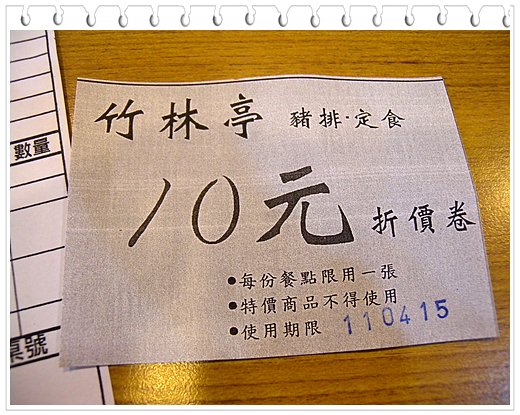 竹林亭 豬排·定食
10元 折價卷
●每份餐點限用一張
●特價商品不得使用
●使用期限 110415
數量
票號